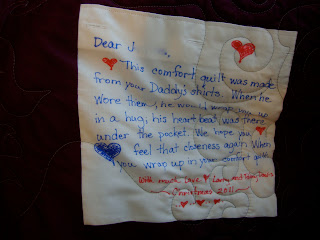 Dear J
This comfort quilt was made
from your Daddy's shirts. When he
wore them, he would wrap you up
in a hug; his heart beat was there
under the pocket. We hope you
feel that closeness again, When
you wrap up in your comfort quilt.
With much Love Larry and
Christmas 2011